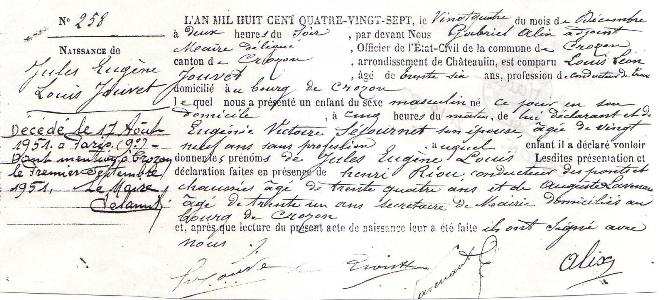 N° 258
NAISSANCE DE
Jules Eugène
Louis Jouvet
Décédé le 17 Août
1951 à Paris (9e)
Dont mention à Crozon
le premier Septembre
1951.
Le Maire
L'AN MIL HUIT CENT QUATRE-VINGT-SEPT, le Vingtquatre du mois de Décembre
à deux heures du soir, par devant Nous Gabriel Alix adjoint
Maire délégué, Officier de l'État-Civil de la commune de Crozon
canton de Crozon, arrondissement de Châteaulin, est comparu Louis Léon
Jouvet, âgé de trente six ans, profession de conducteur de
domicilié à au bourg de Crozon
lequel nous a présenté un enfant du sexe masculin né ce jour en son
domicile, à cinq heures du matin, de lui déclarant et de
Eugénie Victoire Séjournet son épouse, âgée de vingt
neuf ans sans profession auquel enfant il a déclaré vouloir
donner les prénoms de Jules Eugène Louis Lesdites présentation et
déclaration faites en présence de henri Riou, conducteur des ponts et
chaussées âgé de trente quatre ans et de Auguste
âgé de trente un ans secrétaire de Mairie domiciliés au
bourg de Crozon
et, après que lecture du présent acte de naissance leur a été faite ils ont signé avec
nous
Alix